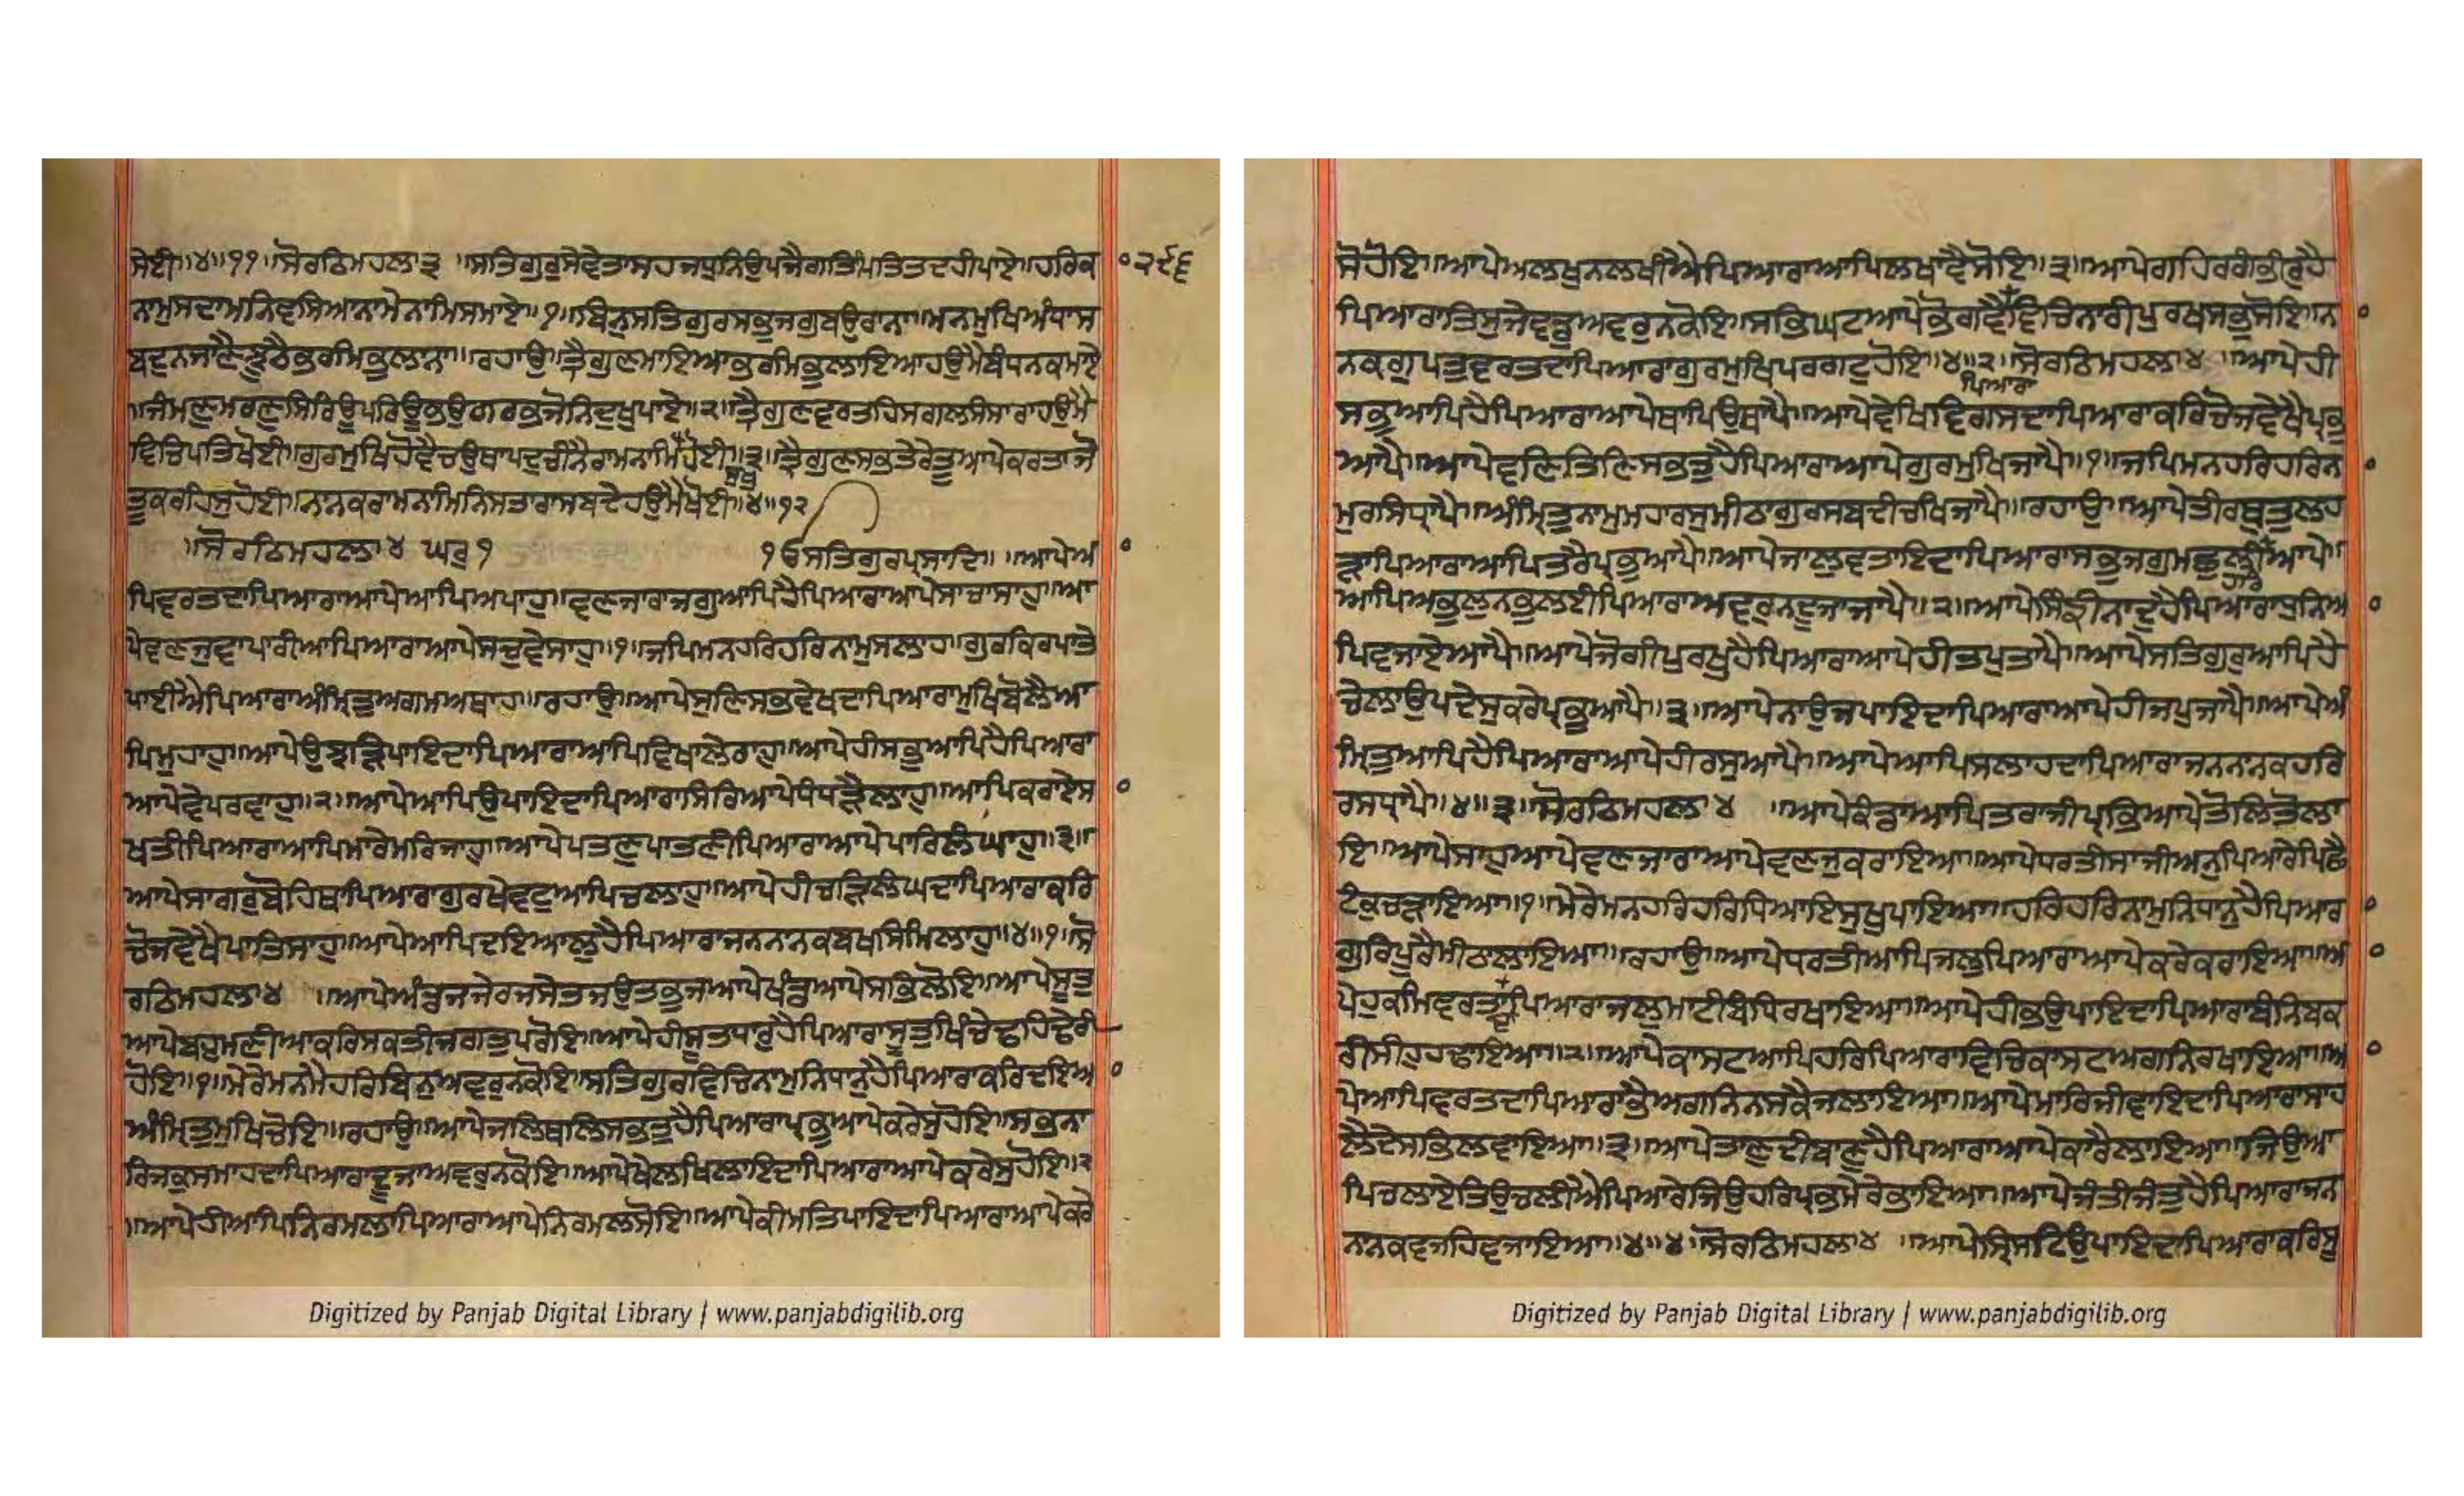 ਸੋਈ॥੪॥੧੧॥ਸੋਰਠਿਮਹਲਾ੩ ॥ਸਤਿਗੁਰਸੇਵੇਤਾਸਹਜਧੁਨਿਉਪਜੈਗਤਿਮਤਿਤਦਹੀਪਾਏ॥ਹਰਿਕਾ ੨੯੬
ਨਾਮੁਸਦਾਮਨਿਵਸਿਆਨਾਮੇਨਾਮਿਸਮਾਏ॥੧॥ਬਿਨੁਸਤਿਗੁਰਸਭੁਜਗੁਬਉਰਾਨਾ॥ਮਨਮੁਖਿਅੰਧਾਸ
ਬਦੁਨਜਾਣੈਝੂਠੈਭਰਮਿਭੁਲਾਨਾ॥ਰਹਾਉ॥ਤ੍ਰੈਗੁਣਮਾਇਆਭਰਮਿਭੁਲਾਇਆਹਉਮੈਬੰਧਨਕਮਾਏ
॥ਜੰਮਣੁਮਰਣੁਸਿਰਿਊਪਰਿਊਭਉਗਰਭਜੋਨਿਦੁਖੁਪਾਏ॥੨॥ਤ੍ਰੈਗੁਣਵਰਤਹਿਸਗਲਸੰਸਾਰਾਹਉਮੈ
ਵਿਚਿਪਤਿਖੋਈ॥ਗੁਰਮੁਖਿਹੋਵੈਚਉਥਾਪਦੁਚੀਨੈਰਾਮਨਾਮਿਸੁਖੁਹੋਈ॥੩॥ਤ੍ਰੈਗੁਣਸਭਿਤੇਰੇਤੂਆਪੇਕਰਤਾਜੋ
ਤੂਕਰਹਿਸੁਹੋਈ॥ਨਾਨਕਰਾਮਨਾਮਿਨਿਸਤਾਰਾਸਬਦੇਹਉਮੈਖੋਈ॥੪॥੧੨
॥ਸੋਰਠਿਮਹਲਾ੪ ਘਰੁ੧ ੧ਓਸਤਿਗੁਰਪ੍ਰਸਾਦਿ॥ ॥ਆਪੇਆ
ਪਿਵਰਤਦਾਪਿਆਰਾਆਪੇਆਪਿਅਪਾਹੁ॥ਵਣਜਾਰਾਜਗੁਆਪਿਹੈਪਿਆਰਾਆਪੇਸਾਚਾਸਾਹੁ॥ਆ
ਪੇਵਣਜੁਵਾਪਾਰੀਆਪਿਆਰਾਆਪੇਸਚੁਵੇਸਾਹੁ॥੧॥ਜਪਿਮਨਹਰਿਹਰਿਨਾਮੁਸਲਾਹ॥ਗੁਰਕਿਰਪਾਤੇ
ਪਾਈਐਪਿਆਰਾਅੰਮ੍ਰਿਤੁਅਗਮਅਥਾਹ॥ਰਹਾਉ॥ਆਪੇਸੁਣਿਸਭਵੇਖਦਾਪਿਆਰਾਮੁਖਿਬੋਲੈਆ
ਪਿਮੁਹਾਹੁ॥ਆਪੇਉਝੜਿਪਾਇਦਾਪਿਆਰਾਆਪਿਵਿਖਾਲੇਰਾਹੁ॥ਆਪੇਹੀਸਭੁਆਪਿਹੈਪਿਆਰਾ
ਆਪੇਵੇਪਰਵਾਹੁ॥੨॥ਆਪੇਆਪਿਉਪਾਇਦਾਪਿਆਰਾਸਿਰਿਆਪੇਧੰਧੜੈਲਾਹੁ॥ਆਪਿਕਰਾਏਸਾ
ਖਤੀਪਿਆਰਾਆਪਿਮਾਰੇਮਰਿਜਾਹੁ॥ਆਪੇਪਤਣੁਪਾਤਣੀਪਿਆਰਾਆਪੇਪਾਰਿਲੰਘਾਹੁ॥੩॥
ਆਪੇਸਾਗਰੁਬੋਹਿਥਾਪਿਆਰਾਗੁਰਖੇਵਟੁਆਪਿਚਲਾਹੁ॥ਆਪੇਹੀਚੜਿਲੰਘਦਾਪਿਆਰਾਕਰਿ
ਚੋਜਵੇਖੈਪਾਤਿਸਾਹੁ॥ਆਪੇਆਪਿਦਇਆਲੁਹੈਪਿਆਰਾਜਨਨਾਨਕਬਖਸਿਮਿਲਾਹੁ॥੪॥੧॥ਸੋ
ਰਠਿਮਹਲਾ੪ ॥ਆਪੇਅੰਡਜਜੇਰਜਸੇਤਜਉਤਭੁਜਆਪੇਖੰਡਆਪੇਸਭਿਲੋਇ॥ਆਪੇਸੂਤੁ
ਆਪੇਬਹੁਮਣੀਆਕਰਿਸਕਤੀਜਗਤੁਪਰੋਇ॥ਆਪੇਹੀਸੂਤਧਾਰੁਹੈਪਿਆਰਾਸੂਤੁਖਿੰਚੇਢਹਿਢੇਰੀ
ਹੋਇ॥੧॥ਮੇਰੇਮਨਮੈਹਰਿਬਿਨੁਅਵਰੁਨਕੋਇ॥ਸਤਿਗੁਰਵਿਚਿਨਾਮੁਨਿਧਾਨੁਹੈਪਿਆਰਾਕਰਿਦਇਆ
ਅੰਮ੍ਰਿਤੁਮੁਖਿਚੋਇ॥ਰਹਾਉ॥ਆਪੇਜਲਿਥਲਿਸਭਤੁਹੈਪਿਆਰਾਪ੍ਰਭੁਆਪੇਕਰੇਸੁਹੋਇ॥ਸਭਨਾ
ਰਿਜਕੁਸਮਾਹਦਾਪਿਆਰਾਦੂਜਾਅਵਰੁਨਕੋਇ॥ਆਪੇਖੇਲਖਿਲਾਇਦਾਪਿਆਰਾਆਪੇਕਰੇਸੁਹੋਇ॥੨
॥ਆਪੇਹੀਆਪਿਨਿਰਮਲਾਪਿਆਰਾਆਪੇਨਿਰਮਲਸੋਇ॥ਆਪੇਕੀਮਤਿਪਾਇਦਾਪਿਆਰਾਆਪੇਕਰੇ
ਸੋਹੋਇ॥ਆਪੇਅਲਖੁਨਲਖੀਐਪਿਆਰਾਆਪਿਲਖਾਵੈਸੋਇ॥੩॥ਆਪੇਗਹਿਰਗੰਭੀਰੁਹੈ
ਪਿਆਰਾਤਿਸੁਜੇਵਡੁਅਵਰੁਨਕੋਇ॥ਸਭਿਘਟਆਪੇਭੋਗਵੈਵਿਚਿਨਾਰੀਪੁਰਖਸਭੁਸੋਇ॥ਨਾ
ਨਕਗੁਪਤੁਵਰਤਦਾਪਿਆਰਾਗੁਰਮੁਖਿਪਰਗਟੁਹੋਇ॥੪॥੨॥ਸੋਰਠਿਮਹਲਾ੪ ॥ਆਪੇਹੀ
ਪਿਆਰਾ
ਸਭੁਆਪਿਹੈਪਿਆਰਾਆਪੇਥਾਪਿਉਥਾਪੈ॥ਆਪੇਵੇਖਿਵਿਗਸਦਾਪਿਆਰਾਕਰਿਚੋਜਵੇਖੈਪ੍ਰਭੁ
ਆਪੈ॥ਆਪੇਵਣਿਤਿਣਿਸਭਤੁਹੈਪਿਆਰਾਆਪੇਗੁਰਮੁਖਿਜਾਪੈ॥੧॥ਜਪਿਮਨਹਰਿਹਰਿਨਾ
ਮੁਰਸਿਧ੍ਰਾਪੈ॥ਅੰਮ੍ਰਿਤੁਨਾਮੁਮਹਾਰਸੁਮੀਠਾਗੁਰਸਬਦੀਚਖਿਜਾਪੈ॥ਰਹਾਉ॥ਆਪੇਤੀਰਥੁਤੁਲਹ
ੜਾਪਿਆਰਾਆਪਿਤਰੈਪ੍ਰਭੁਆਪੈ॥ਆਪੇਜਾਲੁਵਤਾਇਦਾਪਿਆਰਾਸਭੁਜਗੁਮਛੁਲੀਆਪੇ॥
ਆਪਿਅਭੁਲੁਨਭੁਲਈਪਿਆਰਾਅਵਰੁਨਦੂਜਾਜਾਪੈ॥੨॥ਆਪੇਸਿੰਙੀਨਾਦੁਹੈਪਿਆਰਾਧੁਨਿਆ
ਪਿਵਜਾਏਆਪੈ॥ਆਪੇਜੋਗੀਪੁਰਖੁਹੈਪਿਆਰਾਆਪੇਹੀਤਪੁਤਾਪੈ॥ਆਪੇਸਤਿਗੁਰੁਆਪਿਹੈ
ਚੇਲਾਉਪਦੇਸੁਕਰੇਪ੍ਰਭੁਆਪੈ॥੩॥ਆਪੇਨਾਉਜਪਾਇਦਾਪਿਆਰਾਆਪੇਹੀਜਪੁਜਾਪੈ॥ਆਪੇਅੰ
ਮ੍ਰਿਤੁਆਪਿਹੈਪਿਆਰਾਆਪੇਹੀਰਸੁਆਪੈ॥ਆਪੇਆਪਿਸਲਾਹਦਾਪਿਆਰਾਜਨਨਾਨਕਹਰਿ
ਰਸਧ੍ਰਾਪੈ॥੪॥੩॥ਸੋਰਠਿਮਹਲਾ੪ ॥ਆਪੇਕੰਡਾਆਪਿਤਰਾਜੀਪ੍ਰਭਿਆਪੇਤੋਲਿਤੋਲਾ
ਇ॥ਆਪੇਸਾਹੁਆਪੇਵਣਜਾਰਾਆਪੇਵਣਜੁਕਰਾਇਆ॥ਆਪੇਧਰਤੀਸਾਜੀਅਨੁਪਿਆਰੇਪਿਛੈ
ਟੰਕੁਚੜਾਇਆ॥੧॥ਮੇਰੇਮਨਹਰਿਹਰਿਧਿਆਇਸੁਖੁਪਾਇਆ॥ਹਰਿਹਰਿਨਾਮੁਨਿਧਾਨੁਹੈਪਿਆਰਾ
ਗੁਰਿਪੂਰੈਮੀਠਾਲਾਇਆ॥ਰਹਾਉ॥ਆਪੇਧਰਤੀਆਪਿਜਲੁਪਿਆਰਾਆਪੇਕਰੇਕਰਾਇਆ॥ਆ
ਪੇਹੁਕਮਿਵਰਤਦਾਪਿਆਰਾਜਲੁਮਾਟੀਬੰਧਿਰਖਾਇਆ॥ਆਪੇਹੀਭਉਪਾਇਦਾਪਿਆਰਾਬੰਨਿਬਕ
ਰੀਸੀਹੁਹਢਾਇਆ॥੨॥ਆਪੇਕਾਸਟਆਪਿਹਰਿਪਿਆਰਾਵਿਚਿਕਾਸਟਅਗਨਿਰਖਾਇਆ॥ਆ
ਪੇਆਪਿਵਰਤਦਾਪਿਆਰਾਭੈਅਗਨਿਨਸਕੈਜਲਾਇਆ॥ਆਪੇਮਾਰਿਜੀਵਾਇਦਾਪਿਆਰਾਸਾਹ
ਲੈਦੇਸਭਿਲਵਾਇਆ॥੩॥ਆਪੇਤਾਣੁਦੀਬਾਣੁਹੈਪਿਆਰਾਆਪੇਕਾਰੈਲਾਇਆ॥ਜਿਉਆ
ਪਿਚਲਾਏਤਿਉਚਲੀਐਪਿਆਰੇਜਿਉਹਰਿਪ੍ਰਭਮੇਰੇਭਾਇਆ॥ਆਪੇਜੰਤੀਜੰਤੁਹੈਪਿਆਰਾਜਨ
ਨਾਨਕਵਜਹਿਵਜਾਇਆ॥੪॥੪॥ਸੋਰਠਿਮਹਲਾ੪ ॥ਆਪੇਸ੍ਰਿਸਟਿਉਪਾਇਦਾਪਿਆਰਾਕਰਿਸੂ
Digitized by Panjab Digital Library | www.panjabdigilib.org
Digitized by Panjab Digital Library | www.panjabdigilib.org